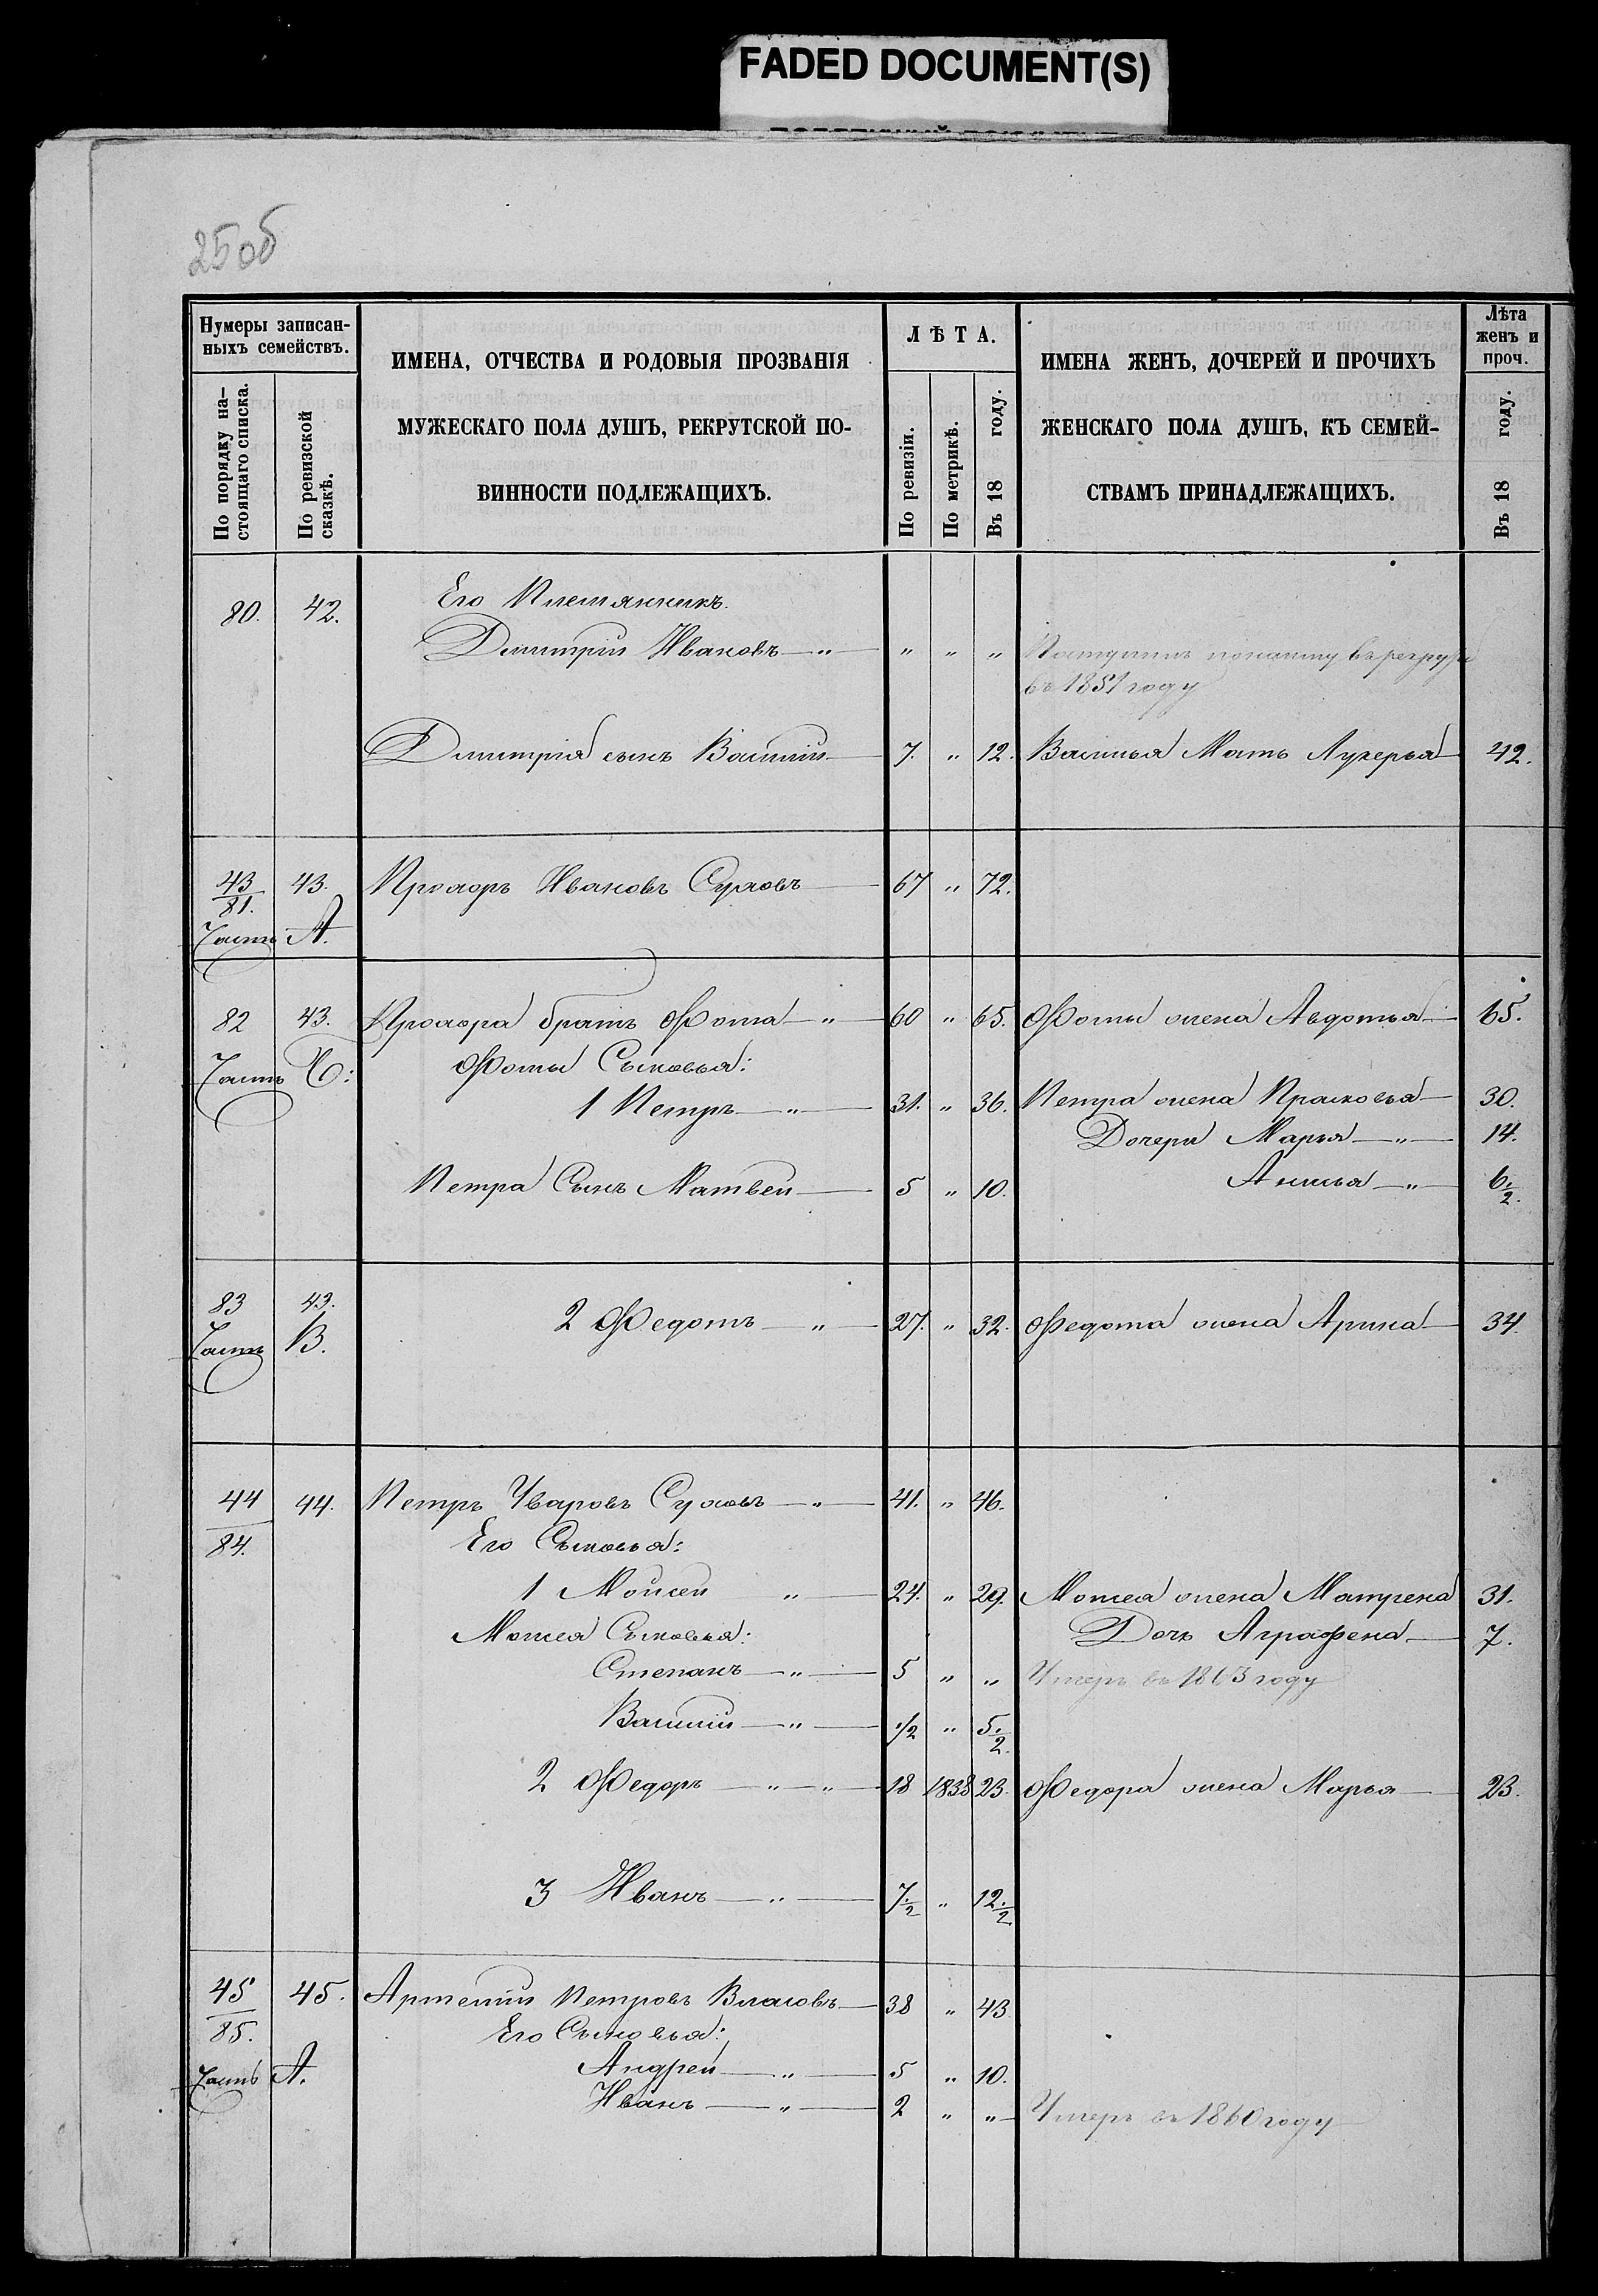 FADED DOCUMENT(S)
25об
Нумеры записан-
ныхъ семействъ.
По порядку на-
стоящаго списка.
По ревизской
сказкѣ.
ИМЕНА, ОТЧЕСТВА И РОДОВЫЯ ПРОЗВАНІЯ
МУЖЕСКАГО ПОЛА ДУШЪ, РЕКРУТСКОЙ ПО-
ВИННОСТИ ПОДЛЕЖАЩИХЪ.
ЛѢТА.
По ревизіи.
По метрикѣ.
Въ 18 году.
ИМЕНА ЖЕНЪ, ДОЧЕРЕЙ И ПРОЧИХЪ
ЖЕНСКАГО ПОЛА ДУШЪ, КЪ СЕМЕЙ-
СТВАМЪ ПРИНАДЛЕЖАЩИХЪ.
Лѣта
женъ и
проч.
Въ 18 году.
80. 42. Его Племянникъ.
Дмитрій Ивановъ — " — " " " Поступилъ в рекруты
въ 1851 году
Дмитрія сынъ Василій — 7. " 12. Василья Мать Лукерья — 42.
43/81. 43. Прохоръ Ивановъ Суховъ — 67 " 72.
Часть А.
82 43. Прохора братъ Фома — " — 60 " 65. Фомы жена Авдотья — 65.
Часть Б: Фомы Сыновья:
1 Петръ — " — 31. " 36. Петра жена Прасковья — 30.
Дочери Марья — " — 14.
Петра Сынъ Матвей — 5 " 10. Анисья — " — 6 ½.
83 43. 2 Федотъ — " — 27. " 32. Федота жена Арина — 34.
Часть В.
44/84. 44. Петръ Уваровъ Суховъ — " — 41. " 46.
Его Сыновья:
1 Мойсей " — 24. " 29. Моисея жена Матрена 31.
Моисея Сыновья: Дочь Аграфена — 7.
Степанъ — " — 5 " " Умеръ въ 1863 году
Василій — " — ½ " 5 ½.
2 Федоръ — " — " — 18 1838 23. Федора жена Марья — 23.
3 Иванъ — " — 7 ½ " 12 ½
45/85. 45. Артемій Петровъ Власовъ — 38 " 43
Его Сыновья:
Часть А. Андрей — " — 5 " 10.
Иванъ — " — 2 " " — Умеръ въ 1860 году